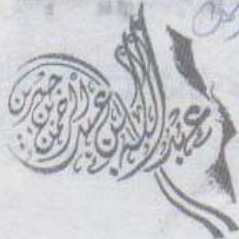 عبد الله بن عبد الرحمن بن جبرين